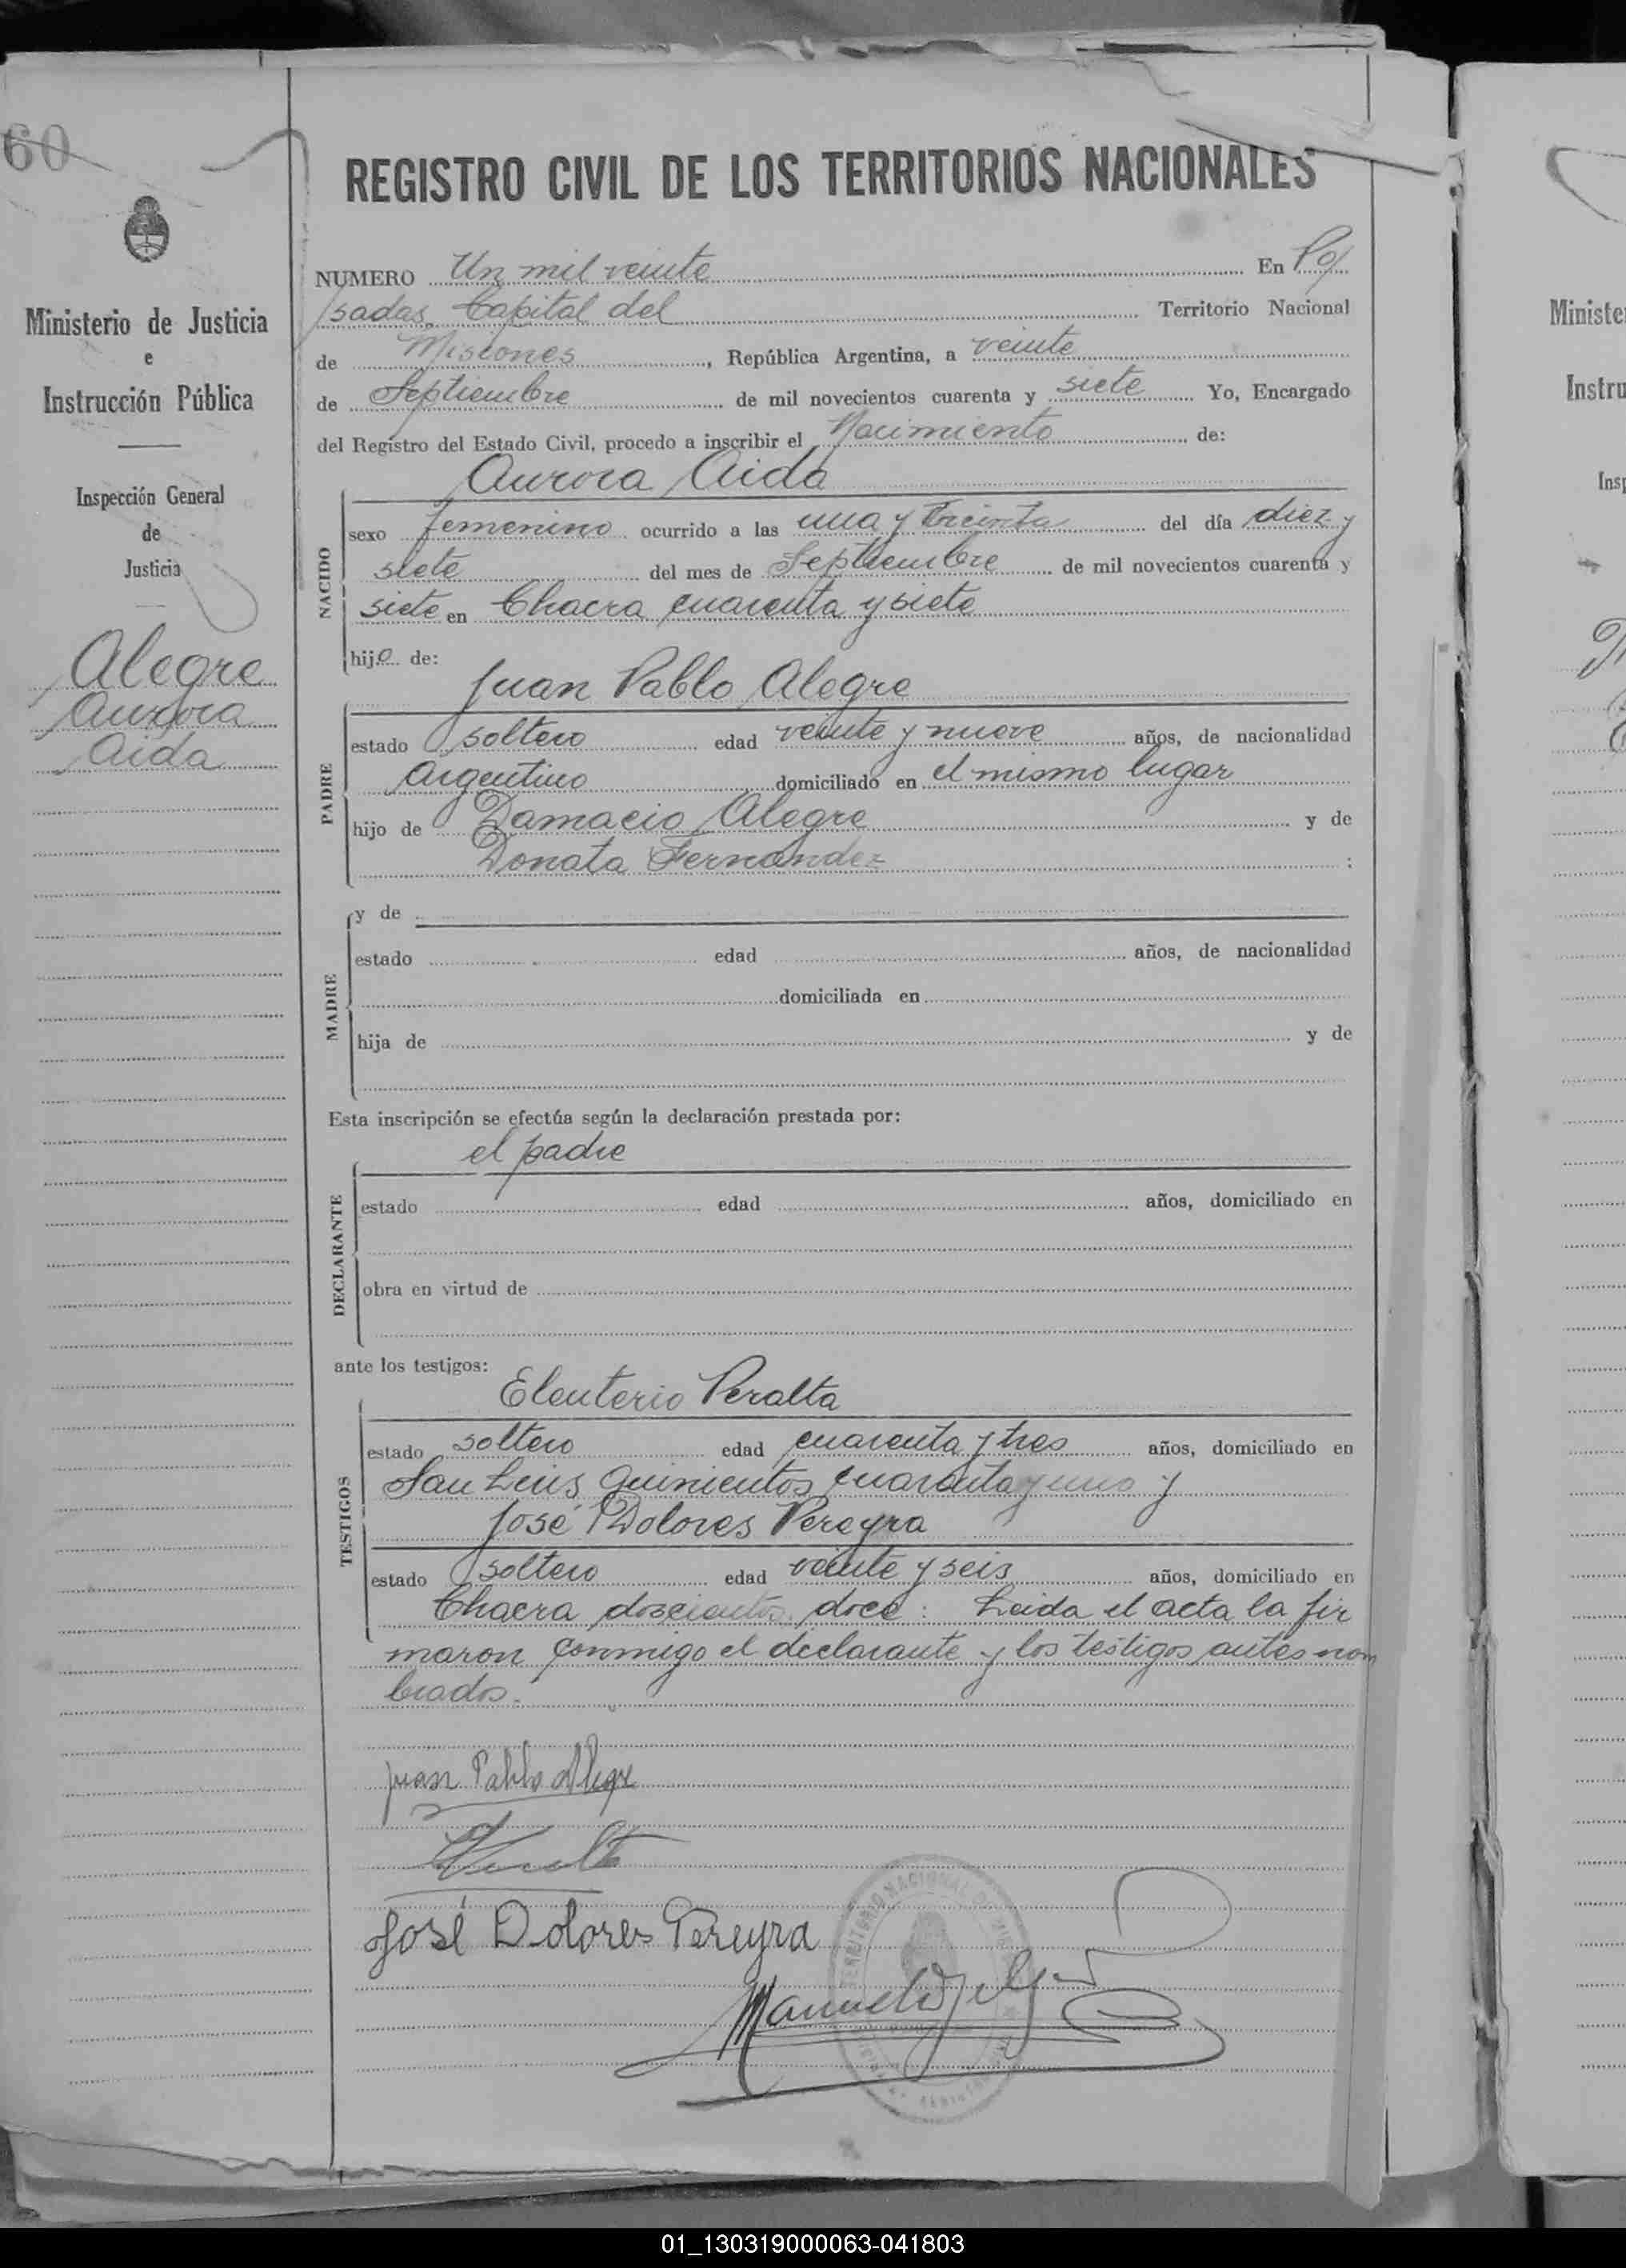 60
Ministerio de Justicia
e
Instrucción Pública
Inspección General
de
Justicia
Alegre
Aurora
Aida
REGISTRO CIVIL DE LOS TERRITORIOS NACIONALES
NUMERO Un mil veinte En Po/
/sadas, Capital del Territorio Nacional
de Misiones, República Argentina, a veinte
de Septiembre de mil novecientos cuarenta y siete Yo, Encargado
del Registro del Estado Civil, procedo a inscribir el Nacimiento de:
NACIDO
Aurora Aida
sexo femenino ocurrido a las una y treinta del día diez y
siete del mes de Septiembre de mil novecientos cuarenta y
siete en Chacra cuarenta y siete
hija de:
PADRE
Juan Pablo Alegre
estado soltero edad veinte y nueve años, de nacionalidad
Argentino domiciliado en el mismo lugar
hijo de Damacio Alegre y de
Donata Fernandez ;
MADRE
y de
estado edad años, de nacionalidad
domiciliada en
hija de y de
Esta inscripción se efectúa según la declaración prestada por:
DECLARANTE
el padre
estado edad años, domiciliado en
obra en virtud de
ante los testigos:
TESTIGOS
Eleuterio Peralta
estado soltero edad cuarenta y tres años, domiciliado en
San Luis quinientos cuarenta y uno y
José Dolores Pereyra
estado soltero edad veinte y seis años, domiciliado en
Chacra doscientos doce: Leida el acta la fir
maron conmigo el declarante y los testigos antes nom
brados.
Juan Pablo Alegre
José Dolores Pereyra
Manuel
TERRITORIO NACIONAL DE
Ministe
Instru
Insp
01_130319000063-041803